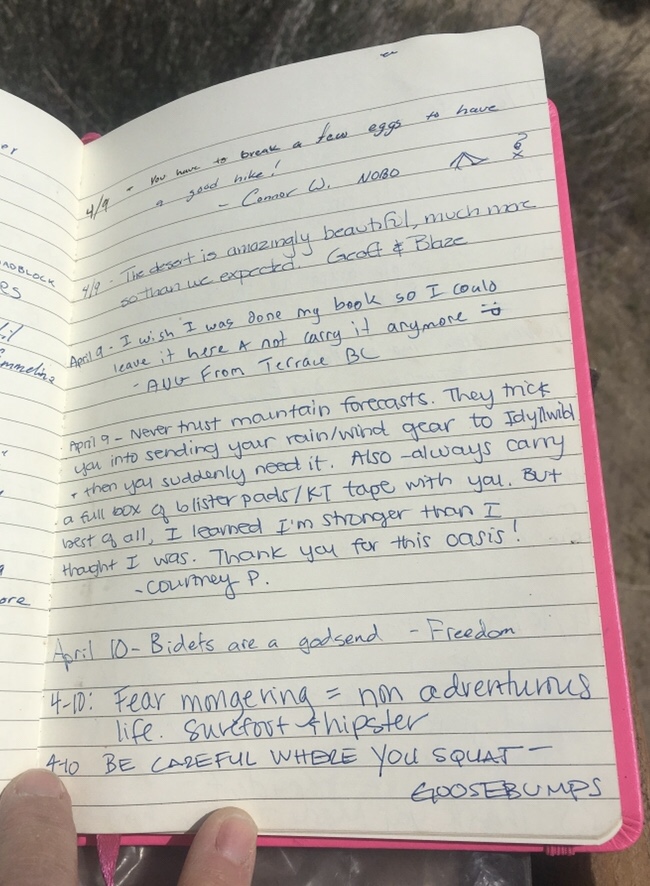 4/9 - You have to break a few eggs to have
a good hike!
- Connor W. NOBO
4/9 - The desert is amazingly beautiful, much more
so than we expected. Geoff & Blaze
April 9 - I wish I was done my book so I could
leave it here & not carry it anymore
- AUG From Terrace BC
April 9 - Never trust mountain forecasts. They trick
you into sending your rain/wind gear to Idyllwild
+ then you suddenly need it. Also - always carry
a full box of blister pads/KT tape with you. But
best of all, I learned I'm stronger than I
thought I was. Thank you for this oasis!
- Courtney P.
April 10 - Bidets are a godsend - Freedom
4-10: Fear mongering = non adventurous
life. Surefoot + hipster
4-10 BE CAREFUL WHERE YOU SQUAT -
GOOSEBUMPS
ADBLOCK
es
Emmeline
ore